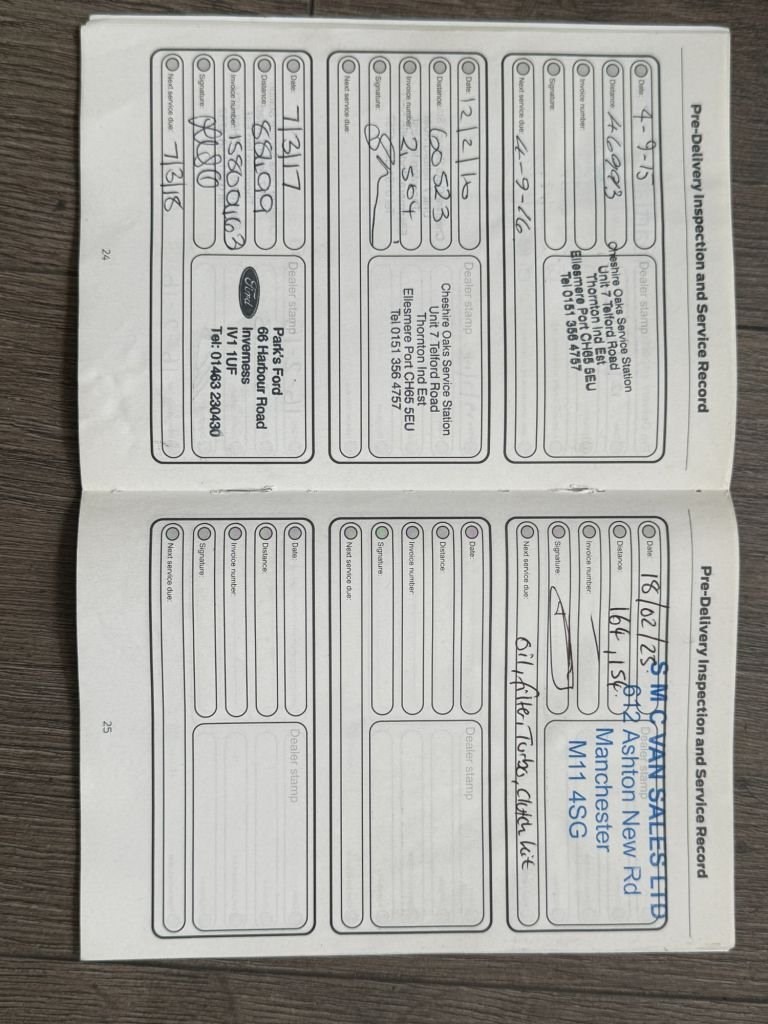 Pre-Delivery Inspection and Service Record
Date: 4-9-15
Distance: 46993
Invoice number:
Signature:
Next service due: 4-9-16
Dealer stamp
Cheshire Oaks Service Station
Unit 7 Telford Road
Thornton Ind Est
Ellesmere Port CH65 5EU
Tel 0151 356 4757
Date: 12/2/16
Distance: 60523
Invoice number: 2504
Signature:
Next service due:
Dealer stamp
Cheshire Oaks Service Station
Unit 7 Telford Road
Thornton Ind Est
Ellesmere Port CH65 5EU
Tel 0151 356 4757
Date: 7/3/17
Distance: 88499
Invoice number: 15809163
Signature:
Next service due: 7/3/18
Dealer stamp
Ford
Park's Ford
66 Harbour Road
Inverness
IV1 1UF
Tel: 01463 230430
24
Pre-Delivery Inspection and Service Record
Date: 18/02/25
Distance: 164,154
Invoice number:
Signature:
Next service due:
Oil, filter, Turbo, Clutch kit
Dealer stamp
S M C VAN SALES LTD
612 Ashton New Rd
Manchester
M11 4SG
Date:
Distance:
Invoice number:
Signature:
Next service due:
Dealer stamp
Date:
Distance:
Invoice number:
Signature:
Next service due:
Dealer stamp
25